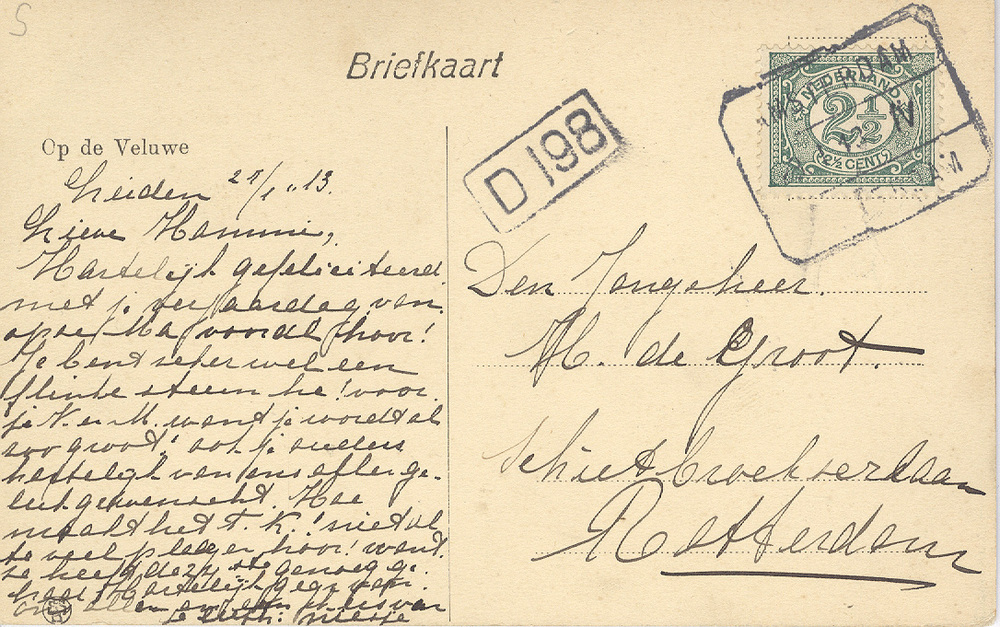 Briefkaart
Op de Veluwe
Leiden 21/1 '13.
Lieve Hammie,
Hartelijk gefeliciteerd
met je verjaardag van
opoe Ma vooral hoor!
Je bent zeker wel een
flinke steun he! voor
je V. en M. want je wordt al
zoo groot! ook je ouders
hartelijk van ons allen ge-
luk gewenscht. Hoe
maakt het T. K.! niet al
te veel plagen hoor! want
ze heeft deze genoeg ge-
had. Hartelijk gegr. van
ons allen en een kus van
je nichtje
D 198
NEDERLAND
2½
2½ CENT
DAM
IV
Den Jongeheer
H. de Groot.
Schietbroekscherlaan
Rotterdam